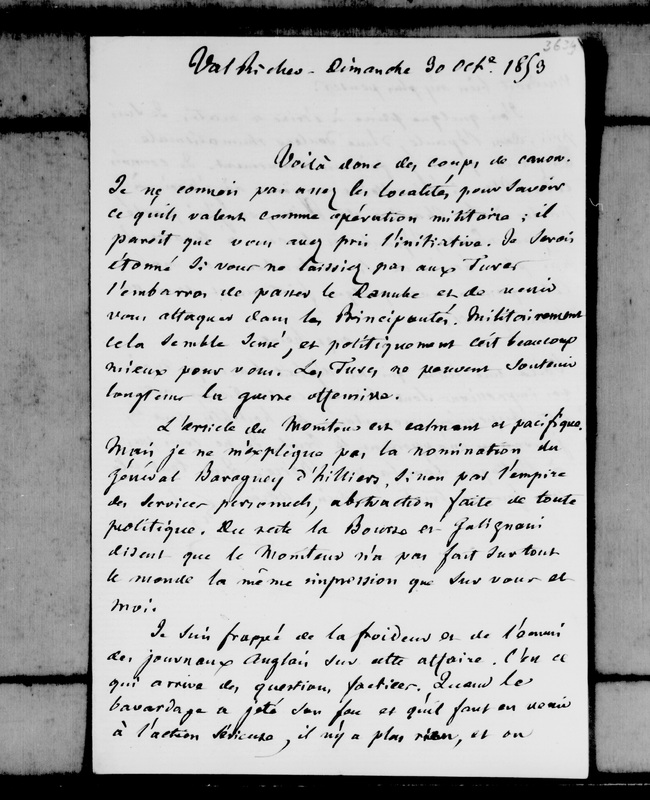 3639
Val Richer - Dimanche 30 Octe. 1853
Voilà donc des coups de canon.
Je ne connois pas assez les localités pour savoir
ce qu'ils valent comme opération militaire ; il
paroit que vous avez pris l'initiative. Je serois
étonné si vous ne laissiez pas aux Turcs
l'embarras de passer le Danube et de venir
vous attaquer dans les Principautés. Militairement
cela semble sensé, et politiquement c'est beaucoup
mieux pour vous. Les Turcs ne peuvent soutenir
longtems la guerre offensive.
L'article du Moniteur est calmant et pacifique.
Mais je ne m'explique pas la nomination du
général Baraguey d'hilliers, sinon par l'empire
des services personnels, abstraction faite de toute
politique. Du reste la Bourse et Galignani
disent que le Moniteur n'a pas fait sur tout
le monde la même impression que sur vous et
moi.
Je suis frappé de la froideur et de l'ennui
des journaux Anglais sur cette affaire. C'est ce
qui arrive des questions factices. Quand le
bavardage a jeté son feu et qu'il faut en venir
à l'action sérieuse, il n'y a plus rien, et on